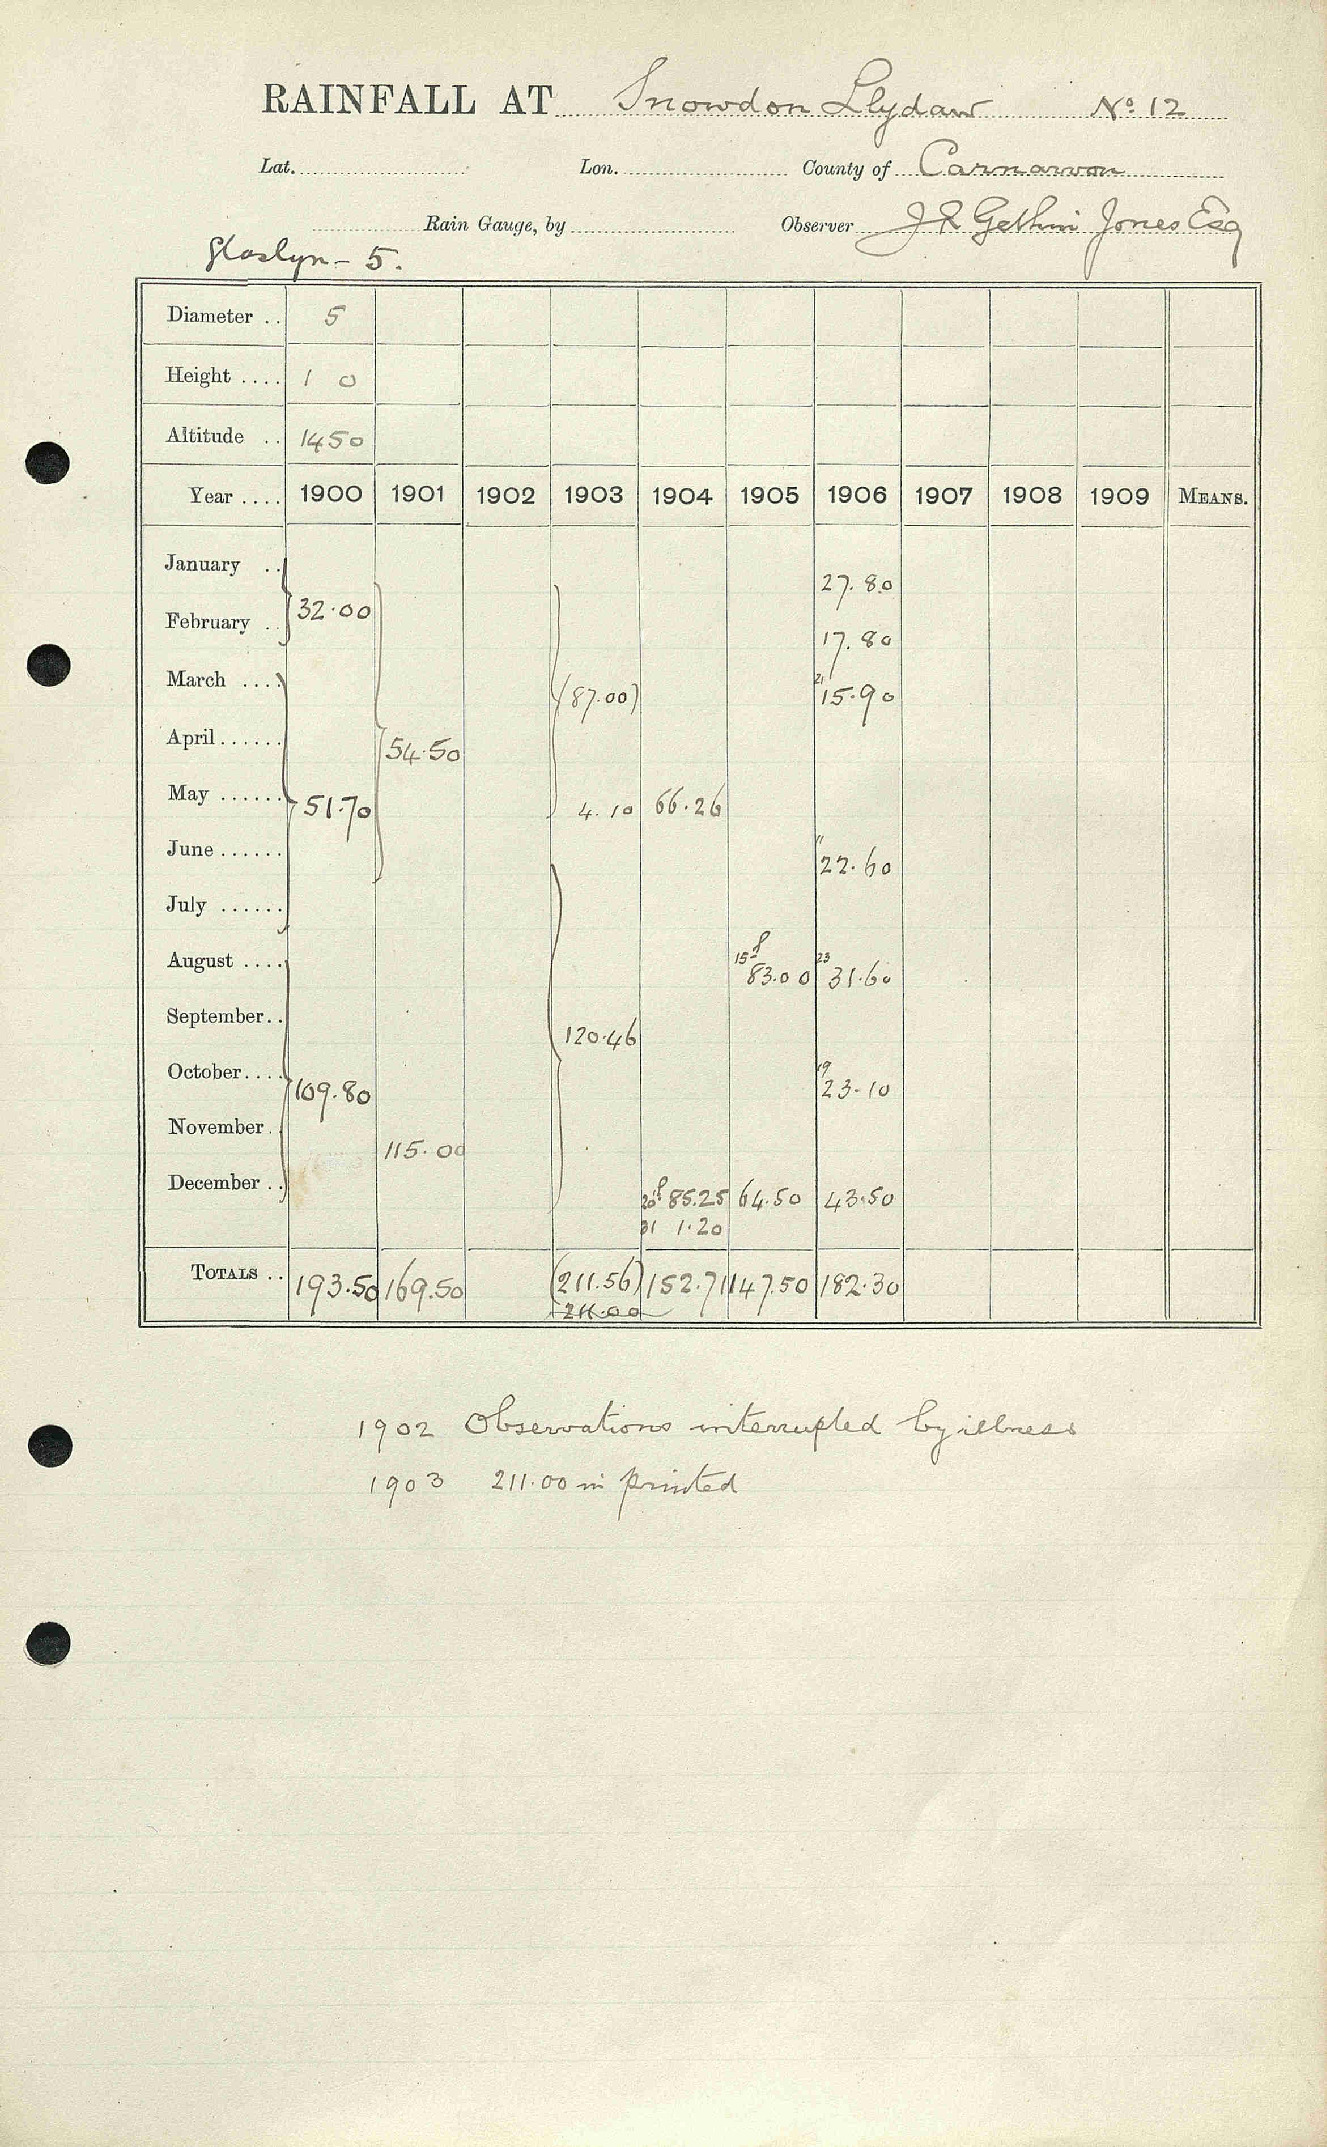 RAINFALL AT Snowdon Llydaw No. 12
Lat. Lon. County of Carnarvon
Rain Gauge, by Observer J R Gethin Jones Esq
Glaslyn - 5.
Diameter .. 5
Height .... 1 0
Altitude .. 1450
Year .... 1900 1901 1902 1903 1904 1905 1906 1907 1908 1909 MEANS.
January .. 27.80
February .. 32.00 17.80
March .... (87.00) 21 15.90
April...... 54.50
May ...... 51.70 4.10 66.26
June ...... 11 22.60
July ......
August .... 15 83.00 23 31.60
September.. 120.46
October.... 109.80 19 23.10
November. 115.00
December .. 20 85.25 64.50 43.50
31 1.20
TOTALS .. 193.50 169.50 (211.56) 152.71 147.50 182.30
211.00
1902 Observations interrupted by illness
1903 211.00 in printed